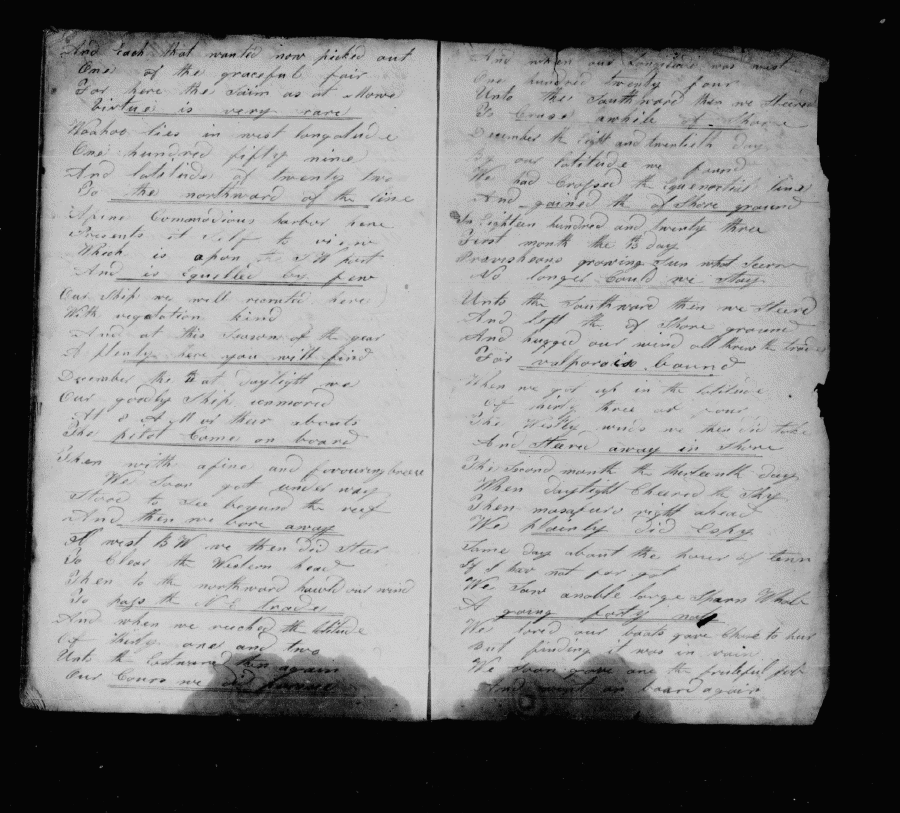 And each that wanted now picked out
One of the graceful fair
For here the Saim as at Mowe
Virtue is very rare
Woahoo lies in west longatude
One hundred fifty nine
And latitude of twenty two
To the northward of the line
A fine Commodious harbor here
Presents it self to view
Which is apon the S W part
And is Equelled by few
Our Ship we well recruted here
With vegetation kind
And at this Season of the year
A plenty here you will find
December the 11 at daylight we
Our goodly Ship unmored
At 8 A M or their abouts
The pilot Come on board
Then with a fine and favouring breeze
We Soon got under way
Stood to Sea beyond the reef
And then we bore away
W west B W we then did Steer
To Clear the Western head
Then to the northward hawld our wind
To pass the N E trades
And when we reached the latitude
Of thirty one and two
Unto the Eastward then again
Our Cours we did
And when our Longitude was west
One hundred twenty four
Unto the Southward then we Steered
To Cruse awhile of Shore
December the Eight and twentieth day
By our latitude we found
We had Crossed the Equenoctial line
And gained the of Shore ground
In Eighteen hundred and twenty three
First month the 13 day
Provesheons growing
No longer Could we Stay
Unto the Southward then we Steerd
And left the of Shore ground
And hugged our wind all threw the trades
For valparaix bound
When we got up in the latitude
Of thirty three or four
The Westly winds we then did take
And Steare away in Shore
The Second month the day
When daylight Cleared the Sky
Then masafuro right ahead
We plainly did Espy
Same day about the hour of tenn
If I hav not for got
We Saw a noble large Sparm Whale
A going forty
We lored our boats gave Chase to her
But finding it was in vain
We Soon gave one the fruitful job
And on board again